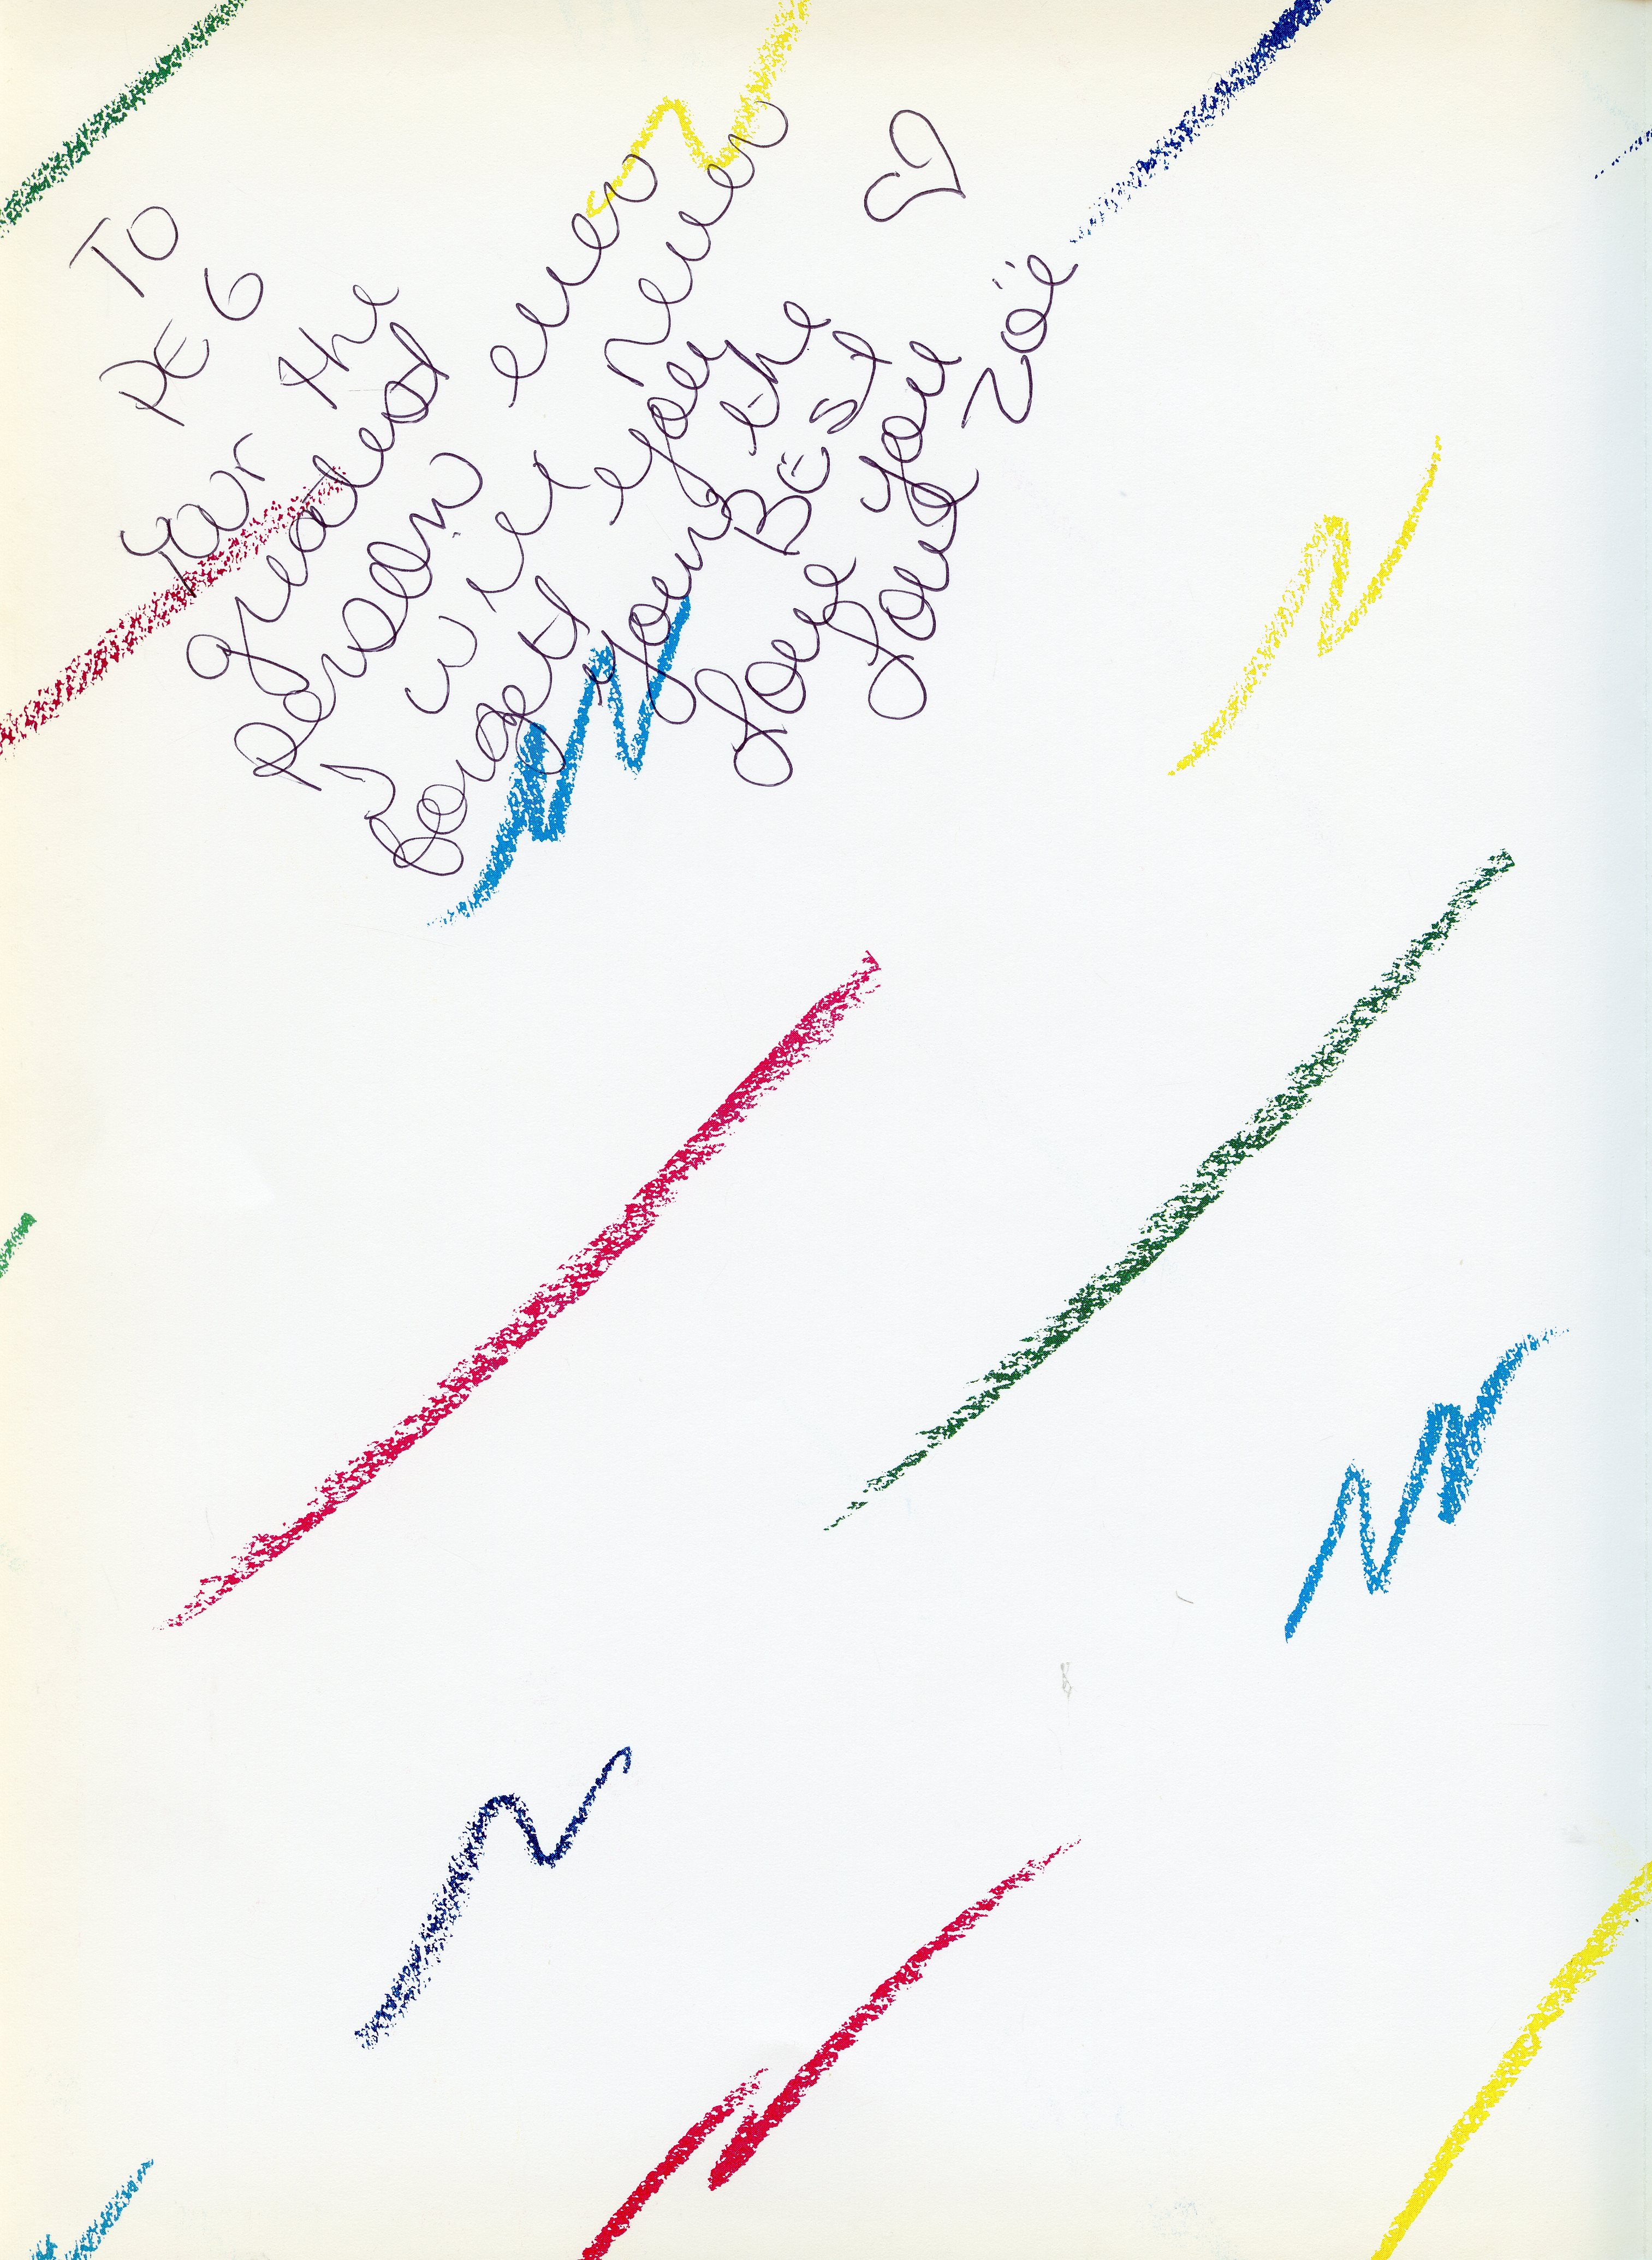 To
PE 6
your the
greatest
Person ever
I will never
forgett you
your the
BEST
Love
Love you
Zoë